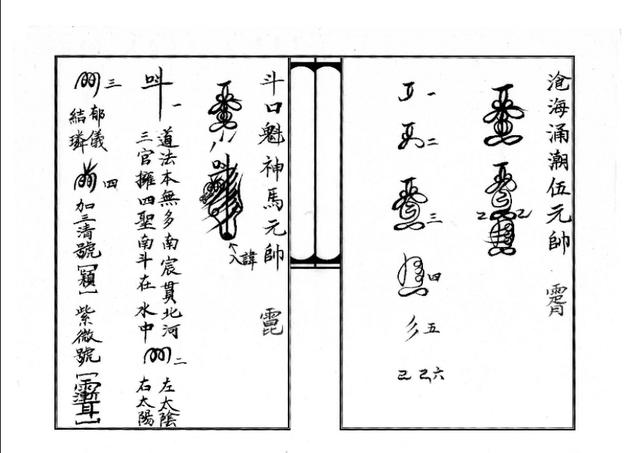 滄海涌潮伍元帥
一
二
三
四
五
六
斗口魁神馬元帥
入諱
一
道法本無多南宸貫北河
三官擁四聖南斗在水中
二
左太陰
右太陽
三
郁儀
結璘
四
加三清號
紫微號